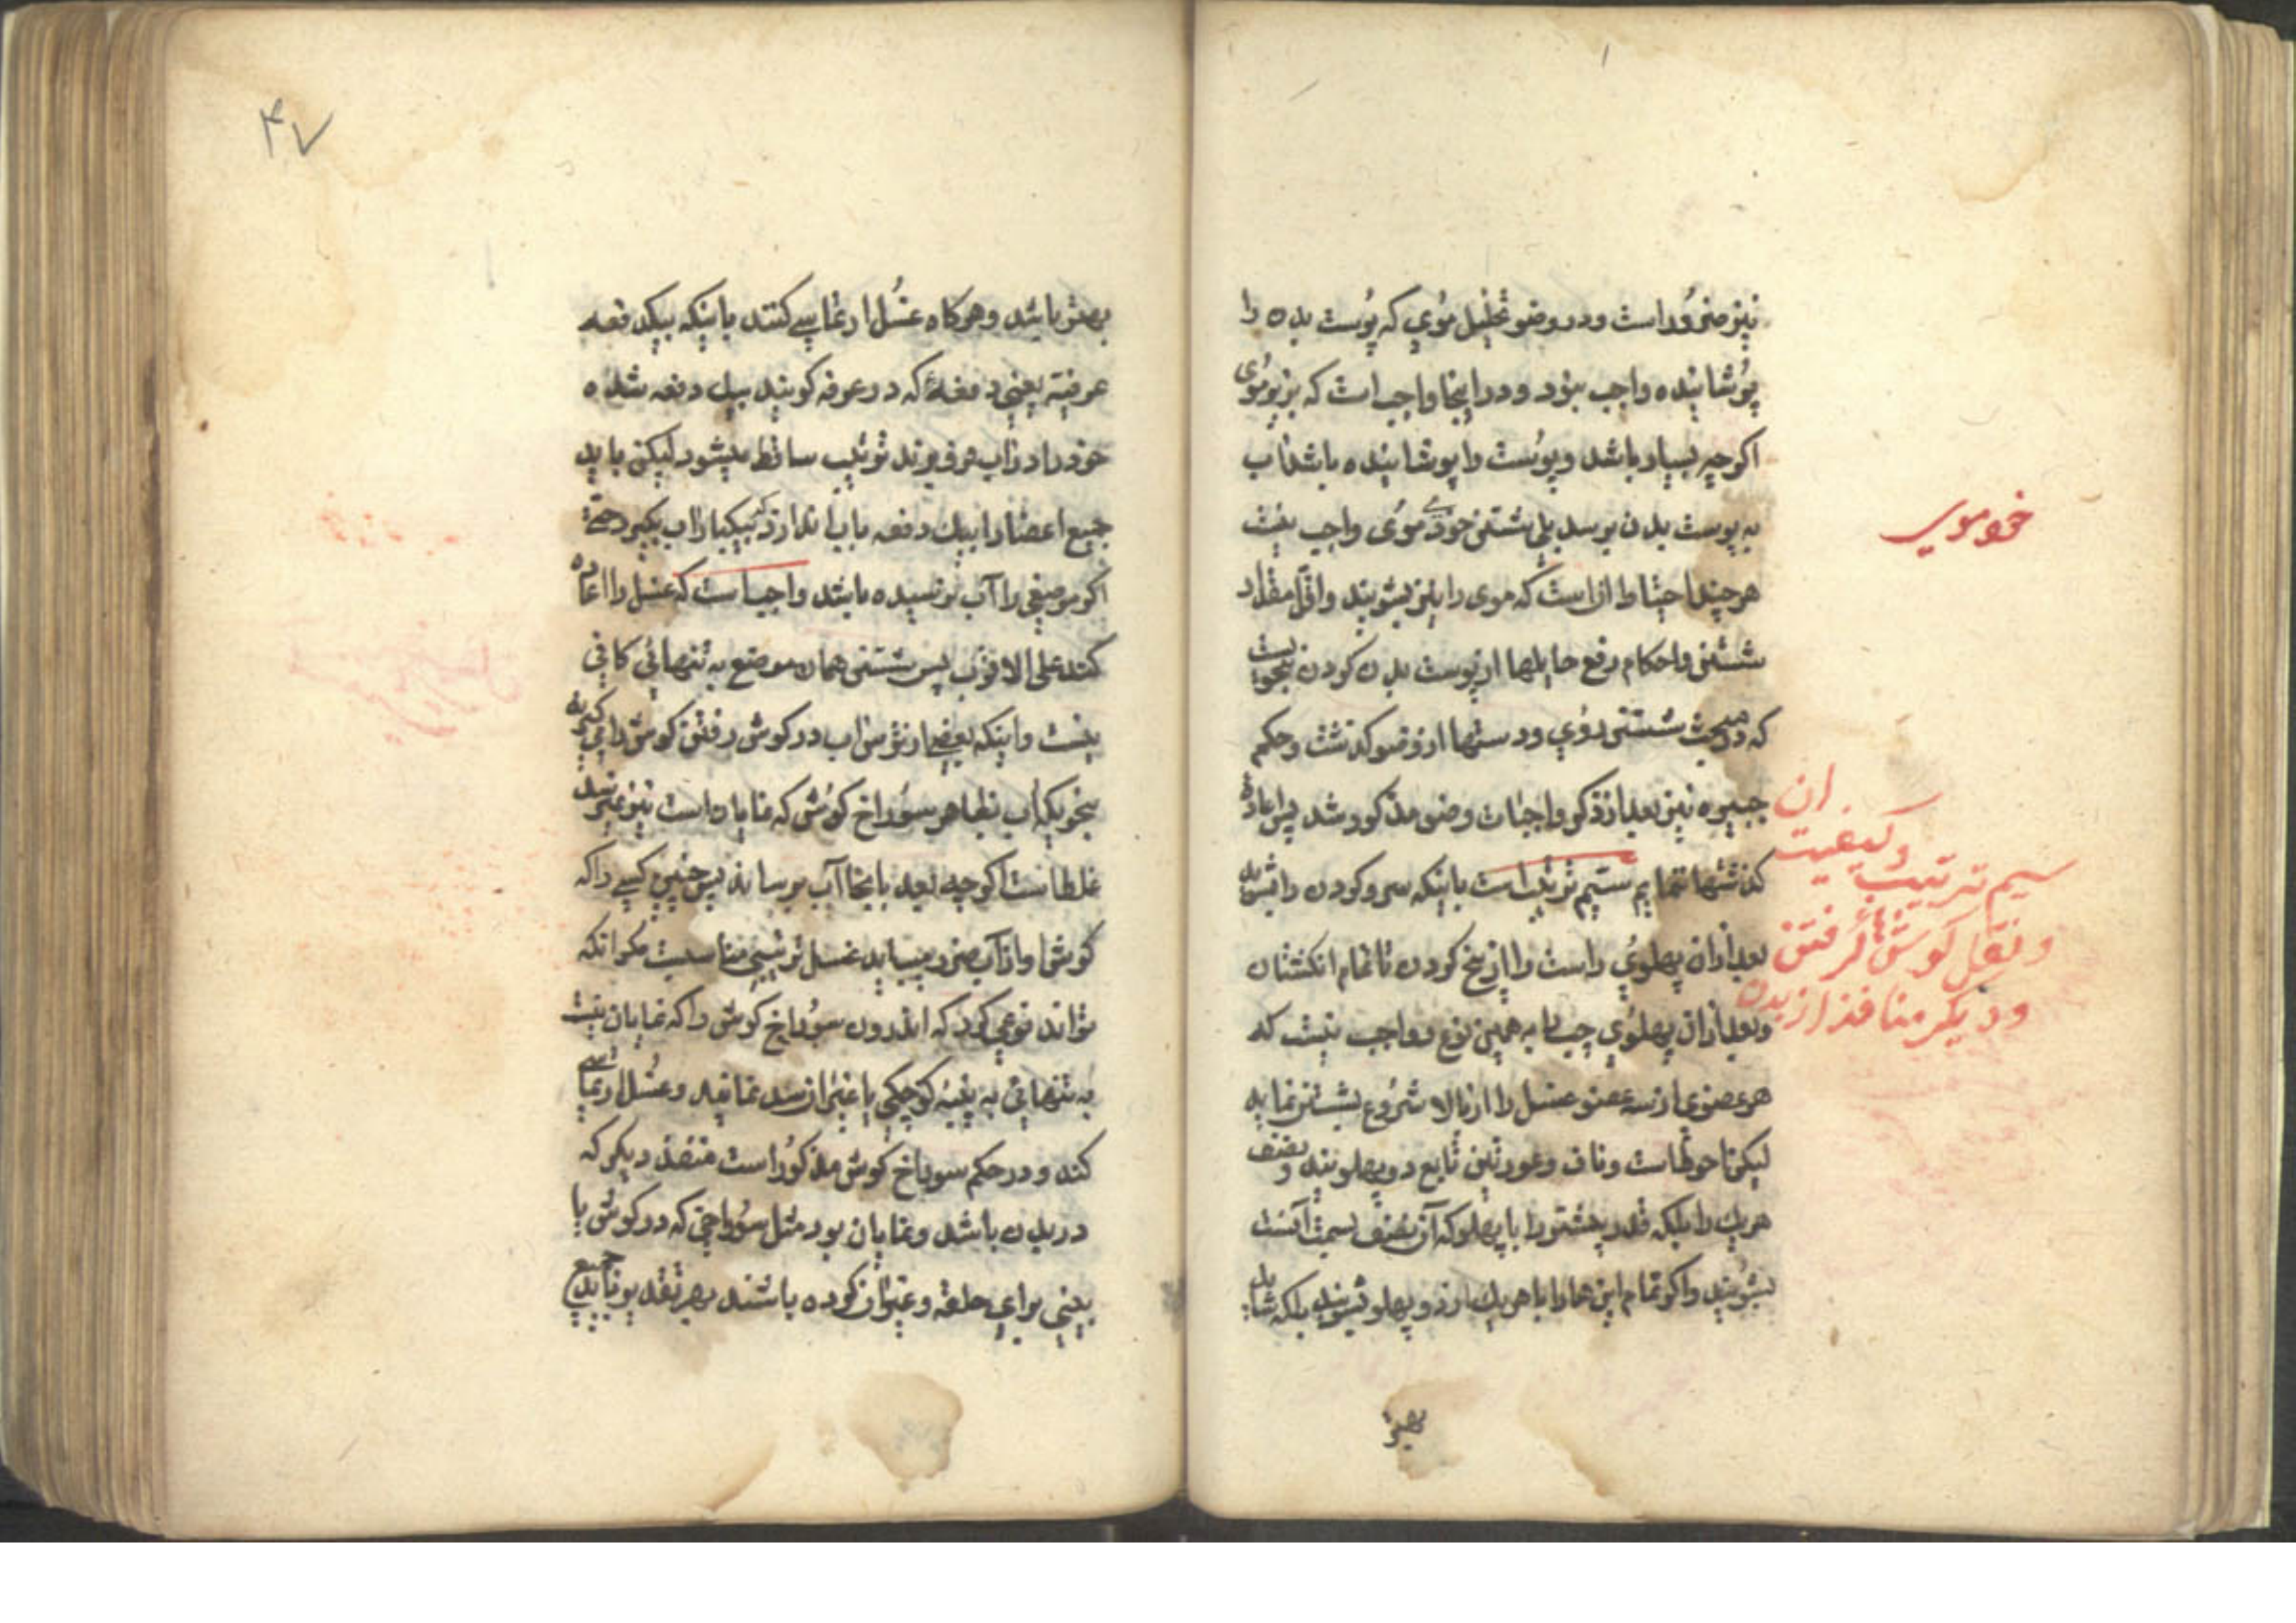 نیز ضرور است و در وضو تخلیل موی که پوست بدن را
پوشانیده واجب نبود و در اینجا واجب است که بزیر موی
اکرچه بسیار باشد و پوست را پوشانیده باشد آب
به پوست بدن برسد بلی شستن خود موی واجب نیست
خود موی
هرچند احتیاط آن است که موی را نیز بشویند و اقل مقدار
شستن و احکام رفع حایلها از پوست بدن کردن بنحویست
که در مبحث شستن روی و دستها از وضو کذشت و حکم
جبیره نیز بعد از ذکر واجبات وضو مذکور شد پس اعاده
کذشتها ننمایم سیم ترتیب است باینکه سر و کردن را بشوید
بعد از آن پهلوی راست را از بیخ کردن تا تمام انکشتان
و بعد از آن پهلوی چپ را به همین نوع و واجب نیست که
سیم ترتیب و کیفیت آن
و نقل کوش کرفتن
و دیکر منافذ از بدن
هر عضوی از سه عضو غسل را از بالا شروع بشستن نماید
لیکن احوط است و ناف و عورتین تابع دو پهلویند و نصف
هر یک را بلکه قدر بیشتر را با پهلو که آن نصف بسمت آنست
بشویند و اکر تمام این ها را با هر یک از دو پهلو بشویند بلکه شاید
بهتر
۴۷
بهتر باشد و هرکاه غسل ارتماسی کنند باینکه بیکدفعه
عرفیه یعنی دفعهٔ که در عرف کویند بیک دفعه شده
خود را در آب فرو برند ترتیب ساقط میشود لیکن باید
جمیع اعضا را بیک دفعه باب اندازد که بیکبار آب بکیرد حتی
اکر موضعی را آب نرسیده باشد واجب است که غسل را اعاده
کند علی الاقرب پس شستن همان موضع به تنهائی کافی
نیست و اینکه بعضی از ترس آب در کوش رفتن کوش را می کیرند
بنحویکه آب بظاهر سوراخ کوش که نمایان است نیز نمیرسد
غلط است اکرچه بعد بانجا آب برساند پس چنین کسی را که
کوش او از آب ضرر مییابد غسل ترتیبی مناسبست مکر آنکه
تواند نوعی کرد که اندرون سوراخ کوش را که نمایان نیست
به تنهائی به پنبه کوچکی یا غیر آن سد نماید و غسل ارتماسی
کند و در حکم سوراخ کوش مذکور است منفذ دیکر که
در بدن باشد و نمایان بود مثل سوراخی که در کوش یا
بینی برای حلقه و عنوان کرده باشند بهر تقدیر باید جمیع